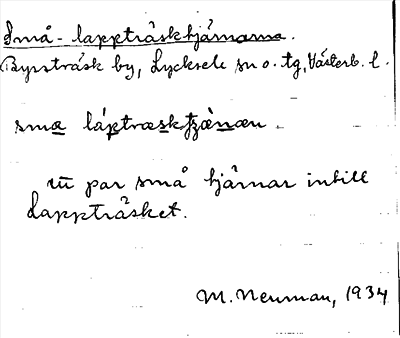 Små-lappträsktjärnarna.
Byssträsk by, Lycksele sn o. tg, Västerb. l.
sma láptræsktjæ̀næn
par små tjärnar intill
Lappträsket.
M. Neuman, 1934